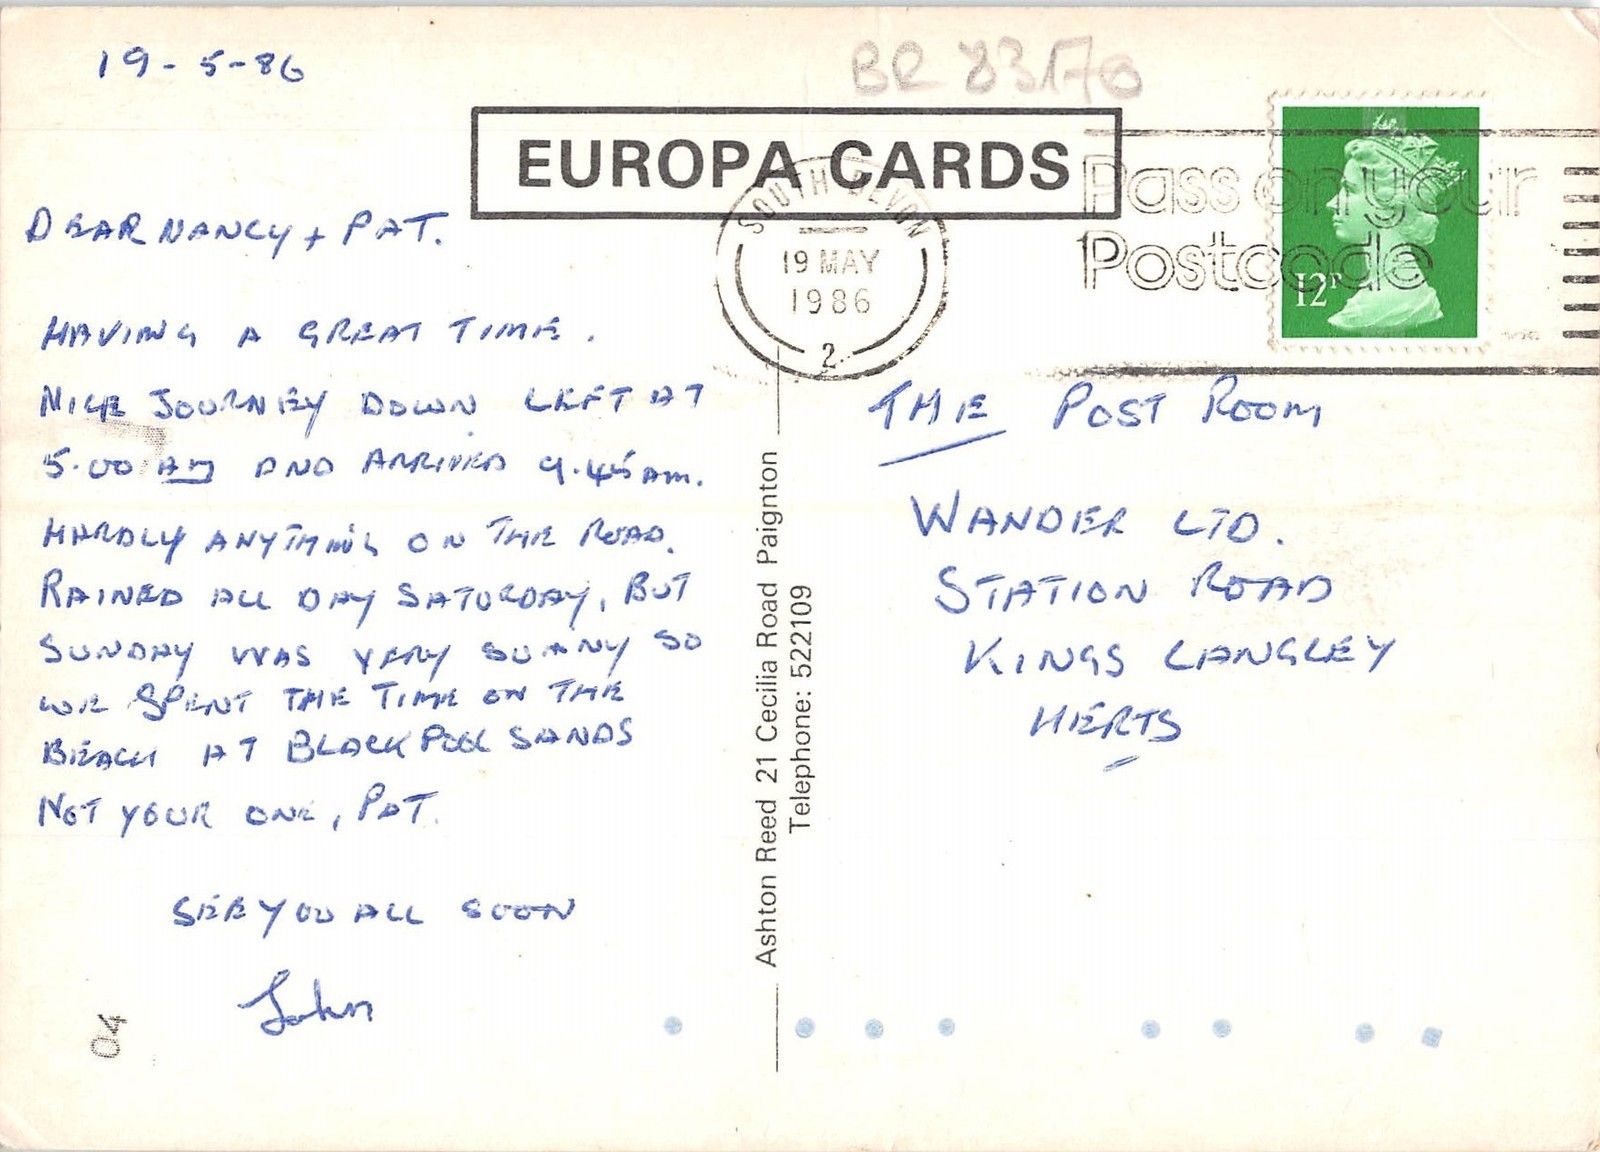 19-5-86
BR 83176
EUROPA CARDS
SOUTH DEVON
19 MAY
1986
2
Pass on your
Postcode
12P
DEAR NANCY + PAT.
HAVING A GREAT TIME.
NICE JOURNEY DOWN LEFT AT
5.00 AM AND ARRIVED 9.45 AM.
HARDLY ANYTHING ON THE ROAD.
RAINED ALL DAY SATURDAY, BUT
SUNDAY WAS VERY SUNNY SO
WE SPENT THE TIME ON THE
BEACH AT BLACKPOOL SANDS
NOT YOUR ONE, PAT.
SEE YOU ALL SOON
John
04
Ashton Reed 21 Cecilia Road Paignton
Telephone: 522109
THE POST ROOM
WANDER LTD.
STATION ROAD
KINGS LANGLEY
HERTS